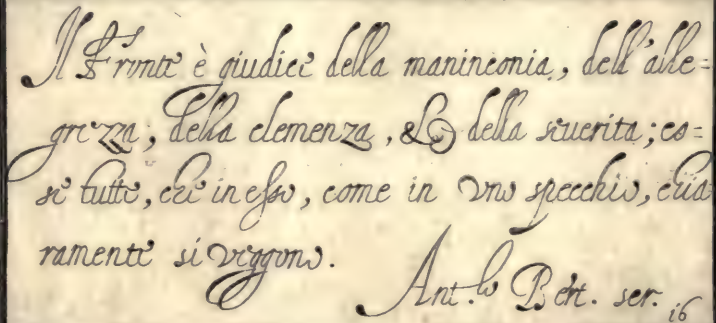 Il Fronte è giudice della maninconia, dell'alle=
grezza, della clemenza, & della seuerita; co=
se tutte, che in esso, come in vno specchio, chia
ramente si veggono.
Ant.º Bert. scr. 16